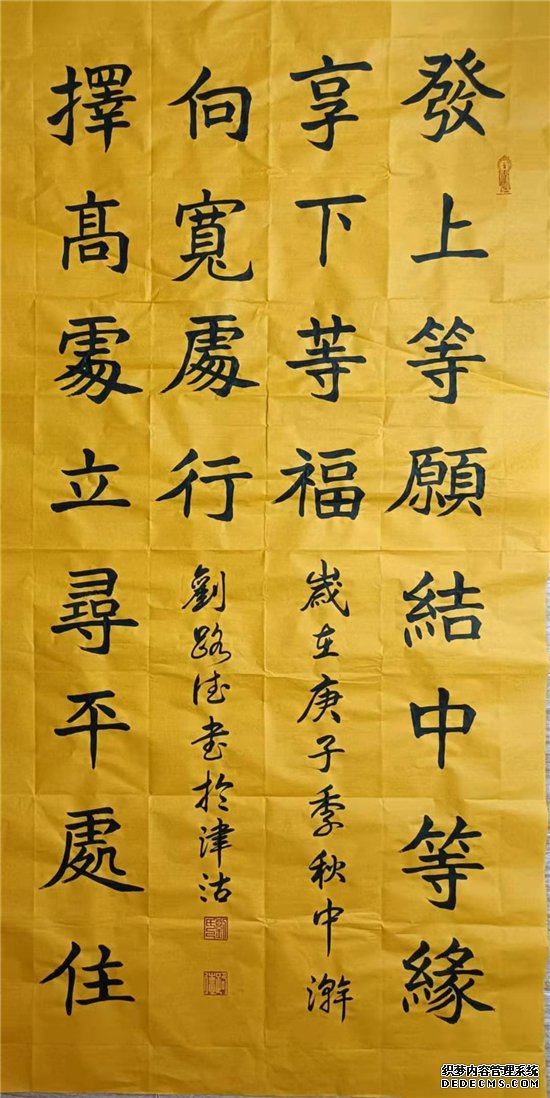 發上等願結中等緣
享下等福
擇髙處立尋平處住
向寬處行
歲在庚子季秋中澣
劉路德書於津沽
织梦内容管理系统
DEDECMS.COM